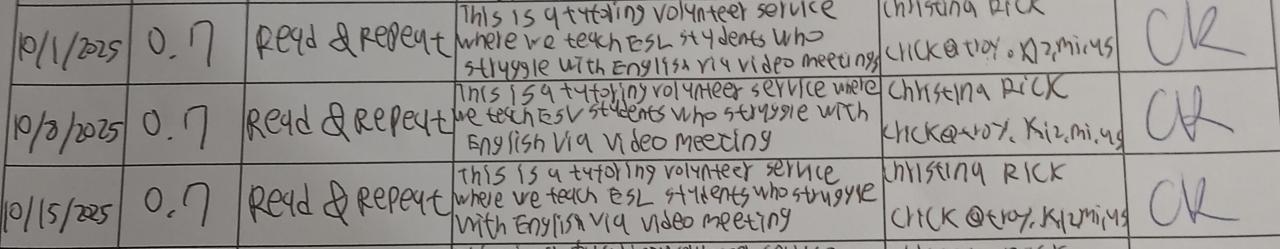 10/1/2025 0.7 Read & Repeat This is a tutoring volunteer service where we teach ESL students who struggle with English via video meetings Christina Rick crick@troy.k12.mi.us CR
10/8/2025 0.7 Read & Repeat This is a tutoring volunteer service where we teach ESV students who struggle with English via video meeting Christina Rick crick@troy.k12.mi.us CR
10/15/2025 0.7 Read & Repeat This is a tutoring volunteer service where we teach ESL students who struggle with English via video meeting Christina Rick crick@troy.k12mi,us CR